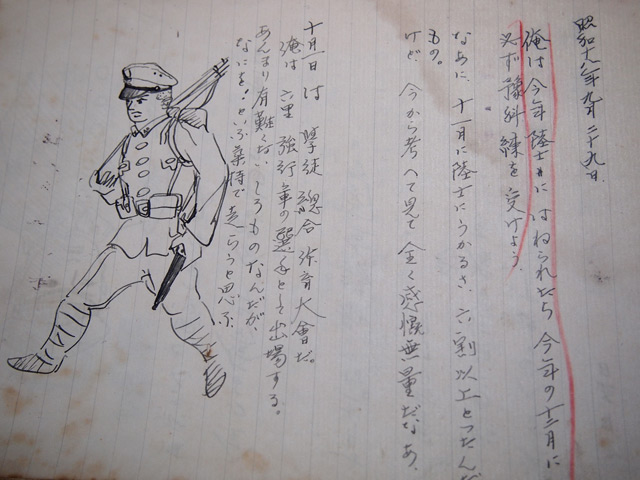 昭和十九年九月二十九日
俺は今年陸士にはねられたら今年の十二月に
必ず豫科練を受けよう。
なあに、十一月に陸士にうかるさ、六割以上とつたんだ
もの。
けど、今から考へて見て全く感慨無量だなあ、
十月一日は學徒總合体育大會だ。
俺は六里強行軍の選手として出場する。
あんまり有難くないしろものなんだが、
なにを!といふ氣持で走らうと思ふ